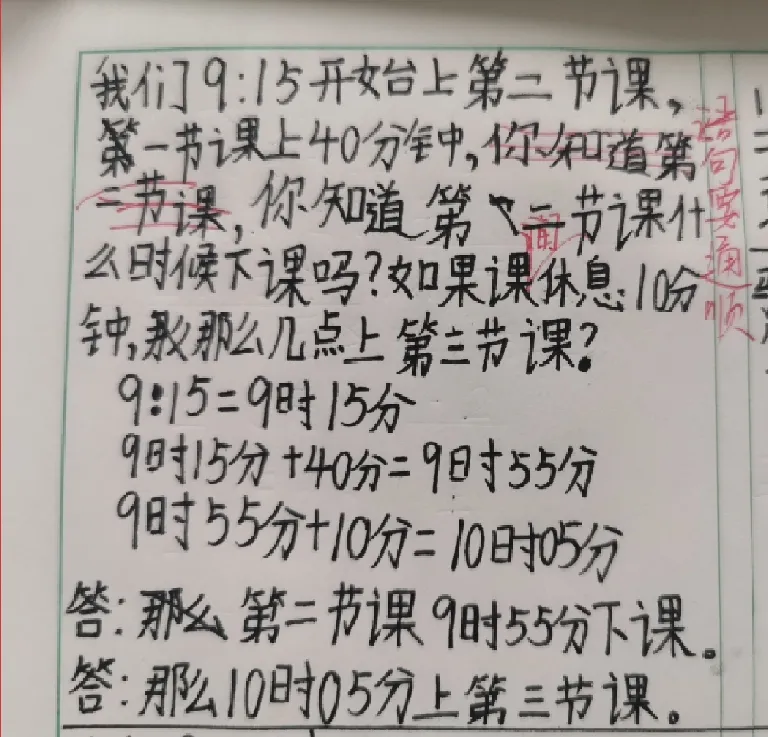 我们9:15开始上第二节课,
第一节课上40分钟,你知道第
二节课,你知道第二节课什
么时候下课吗?如果课间休息10分
钟,那么几点上第三节课?
9:15=9时15分
9时15分+40分=9时55分
9时55分+10分=10时05分
答:那么第二节课9时55分下课。
答:那么10时05分上第三节课。
语句要通顺